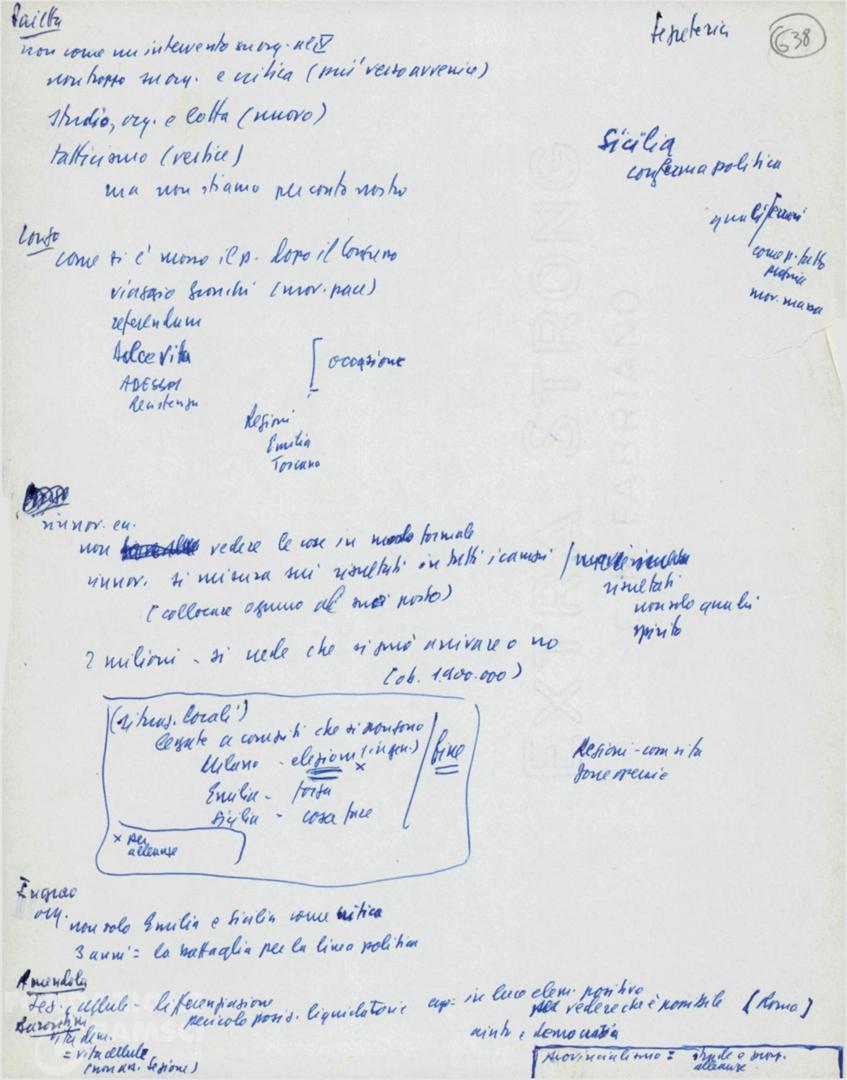 Segreteria
638
Paietta
non come un intervento su org. al IX
non troppo su org. e critica (più verso avvenire)
studio, org. e lotta (nuovo)
tatticismo (vertice)
ma non stiamo per conto nostro
Sicilia
conferma politica
come p. tutto
mov. massa
Longo
come si è mosso il p. dopo il Congresso
viaggio Gronchi (mov. pace)
referendum
Dolce vita
ADESSO
Resistenza
occasione
Regioni
Emilia
Toscana
rinnov. en.
non vedere le cose in modo formale
rinnov. si misura sui risultati in tutti i campi /
risultati
non solo quadri
spirito
(collocare ognuno al suo posto)
2 milioni - si vede che si può arrivare o no
(ob. 1.900.000)
(situaz. locali)
legate a compiti che si pongono
Milano - elezioni (in gen.) x
Emilia - forza
Sicilia - cosa fare
bene
x per
alleanze
Regioni - comita
zone
Ingrao
org.
non solo Emilia e Sicilia come critica
3 anni = la battaglia per la linea politica
Amendola
Fed. cellule - differenziazione
pericolo posiz. liquidatorie
in luce elem. positivo
vedere che è possibile [Roma]
aiuto e democrazia
vita dem.
= vita cellule
(non ass. Sezione)
Provincialismo =
alleanze
EXTRA STRONG
FABRIANO
FONDAZIONE
GRAMSCI